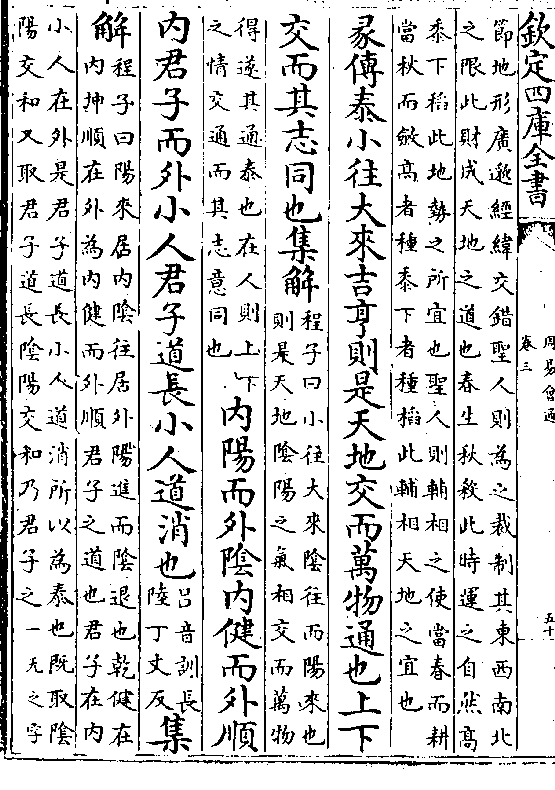 欽定四庫全書
周易會通
卷三
五十
節地形廣邈經緯交錯聖人則為之裁制其東西南北
之限此財成天地之道也春生秋殺此時運之自然高
黍下稻此地勢之所宜也聖人則輔相之使當春而耕
當秋而斂高者種黍下者種稻此輔相天地之宜也
彖傳泰小往大來吉亨則是天地交而萬物通也上下
交而其志同也集解
程子曰小往大來陰往而陽來也
則是天地陰陽之氣相交而萬物
得遂其通泰也在人則上下
之情交通而其志意同也
内陽而外陰内健而外順
内君子而外小人君子道長小人道消也
吕音訓長
陸丁丈反
集
解
程子曰陽來居内陰往居外陽進而陰退也乾健在
内坤順在外為内健而外順君子之道也君子在内
小人在外是君子道長小人道消所以為泰也既取陰
陽交和又取君子道長陰陽交和乃君子之一无之字